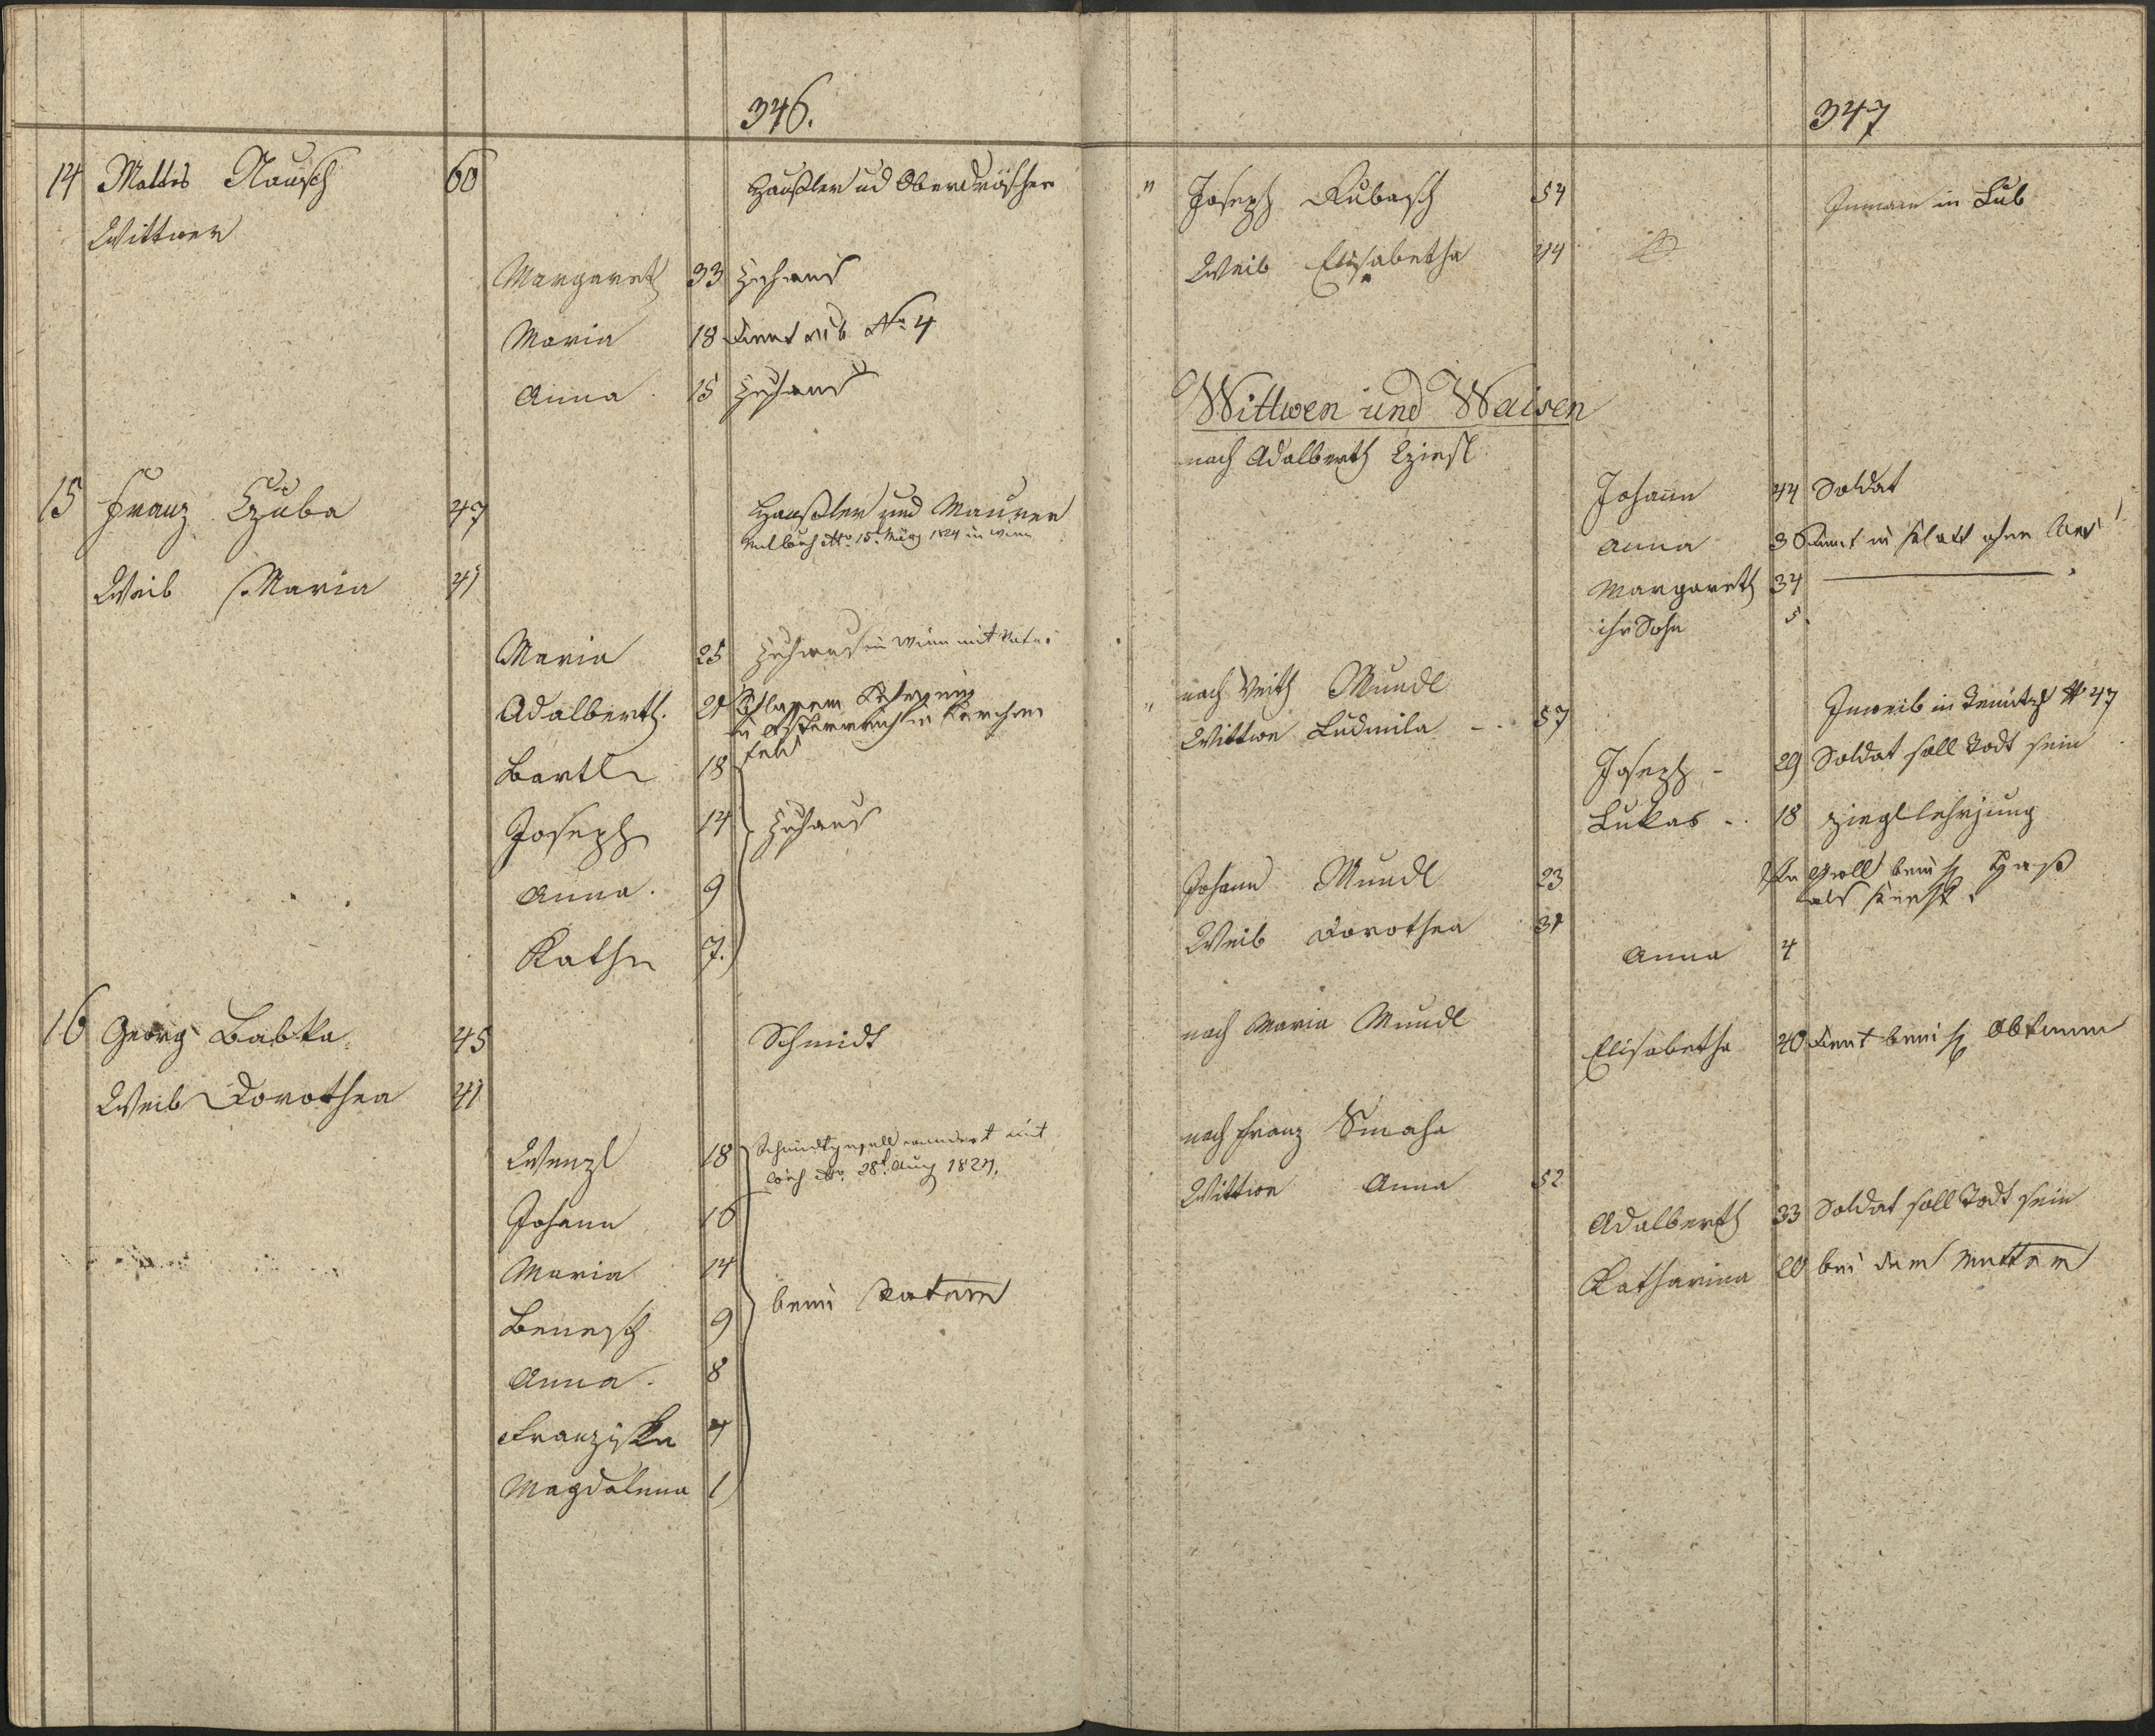 346.
14 Mattes Nausch 60 Häußler ud Oberdröscher
Wittwer
Margareth 33 zuhaus
Maria 18 dient No 4
Anna 15 zuhaus
15 Franz Czuba 47 Häußler und Maurer
15t März 1824 in Wien
Weib Maria 41
Maria 25 zuhaus in Wien mit Vater
Adalberth 21
in Österreich in
Bartl 18 feld
Joseph 14 zuhaus
Anna 9
Kathr 7.
16 Georg Babka 45 Schmidt
Weib Dorothea 41
Wenzl 18 Schmidtgesell wandert mit
28t Aug 1824.
Johann 16
Maria 14
beim Vatern
Benesch 9
Anna 8
Franziska 4
Magdalena 1
347
" Joseph Kubasch 54 Inmann in Lub
Weib Elisabetha 44
Wittwen und Waisen
nach Adalberth Cziesl
Johann 44 Soldat
Anna 36 dient in Klatt ohne
Margareth 34
ihr Sohn 5
nach Veith Mundl
" Wittwe Ludmila - 57 Inweib in No 47
Joseph - 29 Soldat soll Todt sein
Lukas - 18 Ziegllehrjung
Johann Mundl 23 beim H
als Knecht
Weib Dorothea 31
Anna 4
nach Maria Mundl
Elisabetha 20 dient beim H
nach Franz Smaha
Wittwe Anna 52
Adalberth 33 Soldat soll Todt sein
Katharina 20 bei der Muttern